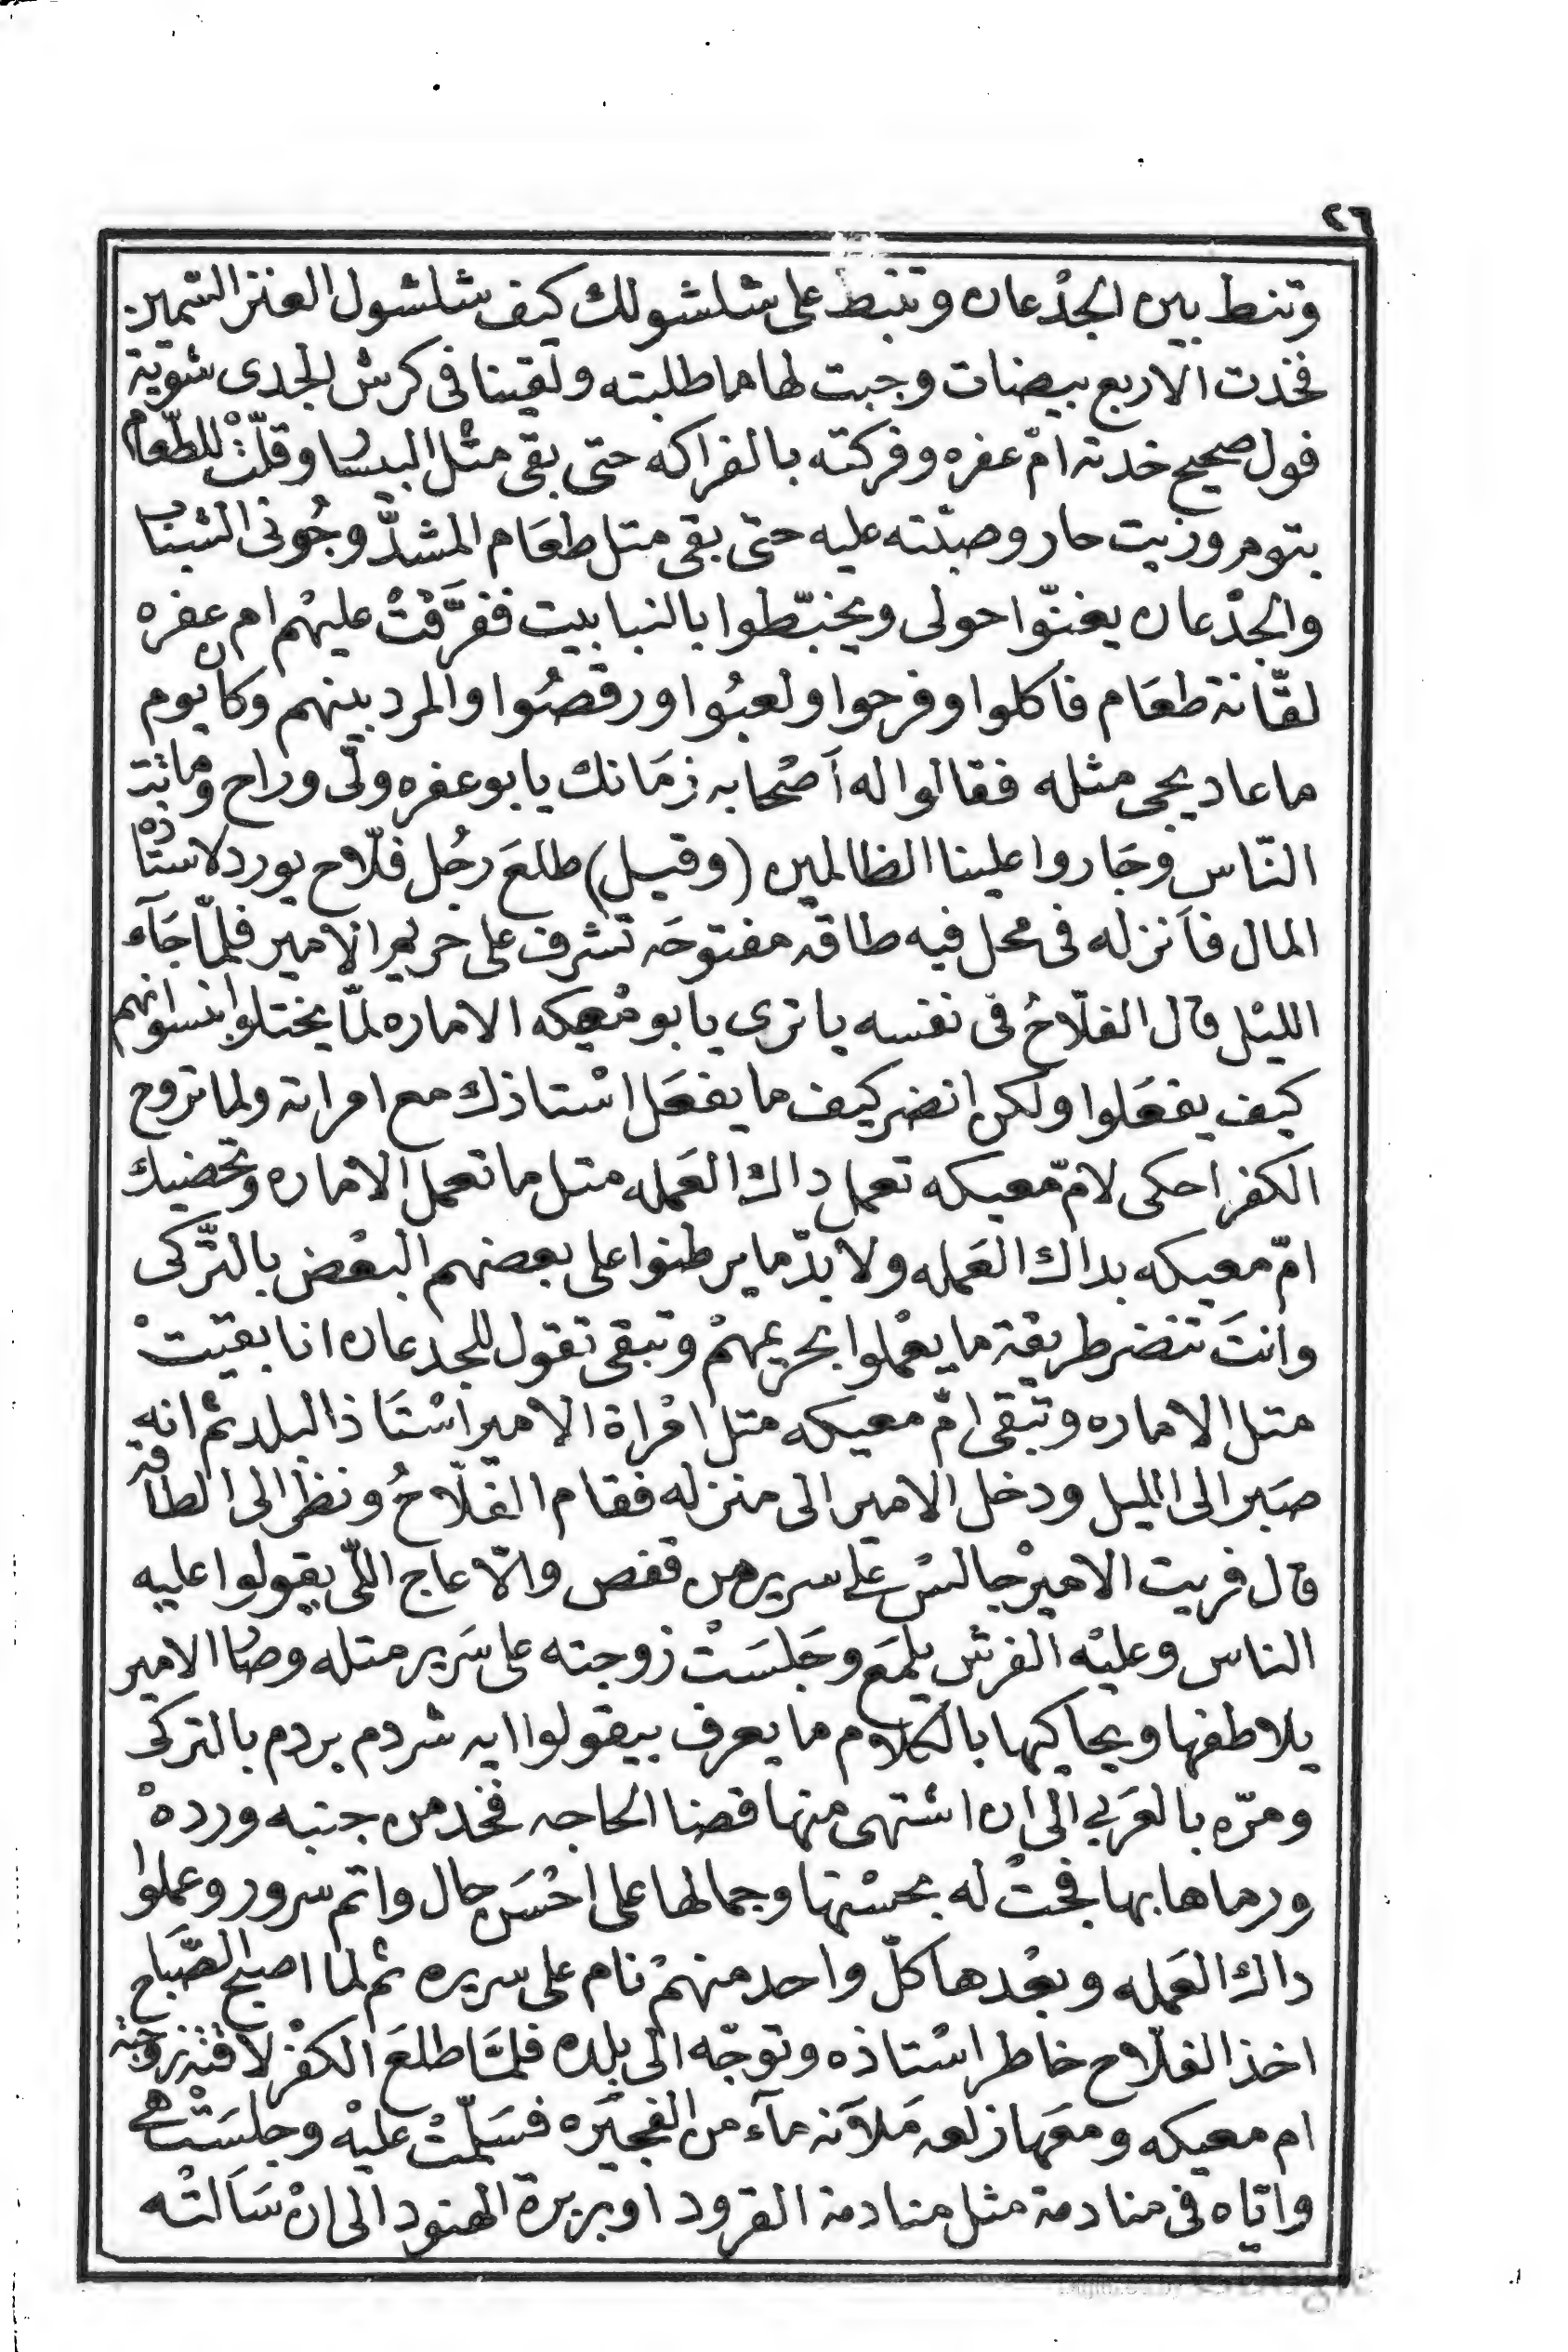 ٢٦
وتنط بين الجدْعان وتنبط على شلشولك كيف شلشول العنز السّمين
فخدت الاربع بيضات وجبت لها ما طلبته ولقينا فى كرش الجدى شويّة
فول صحيح خدته امّ عفره وفركته بالفراكه حتى بقى مثْل البيسار وقلّتْ للطّعام
بتوم وزيت حار وصبّته عليه حتى بقى متل طعَام المشدّ وجُونى الشباب
والجدْعان يغنّوا حولى ويخبّطوا بالنبابيت ففرَّقتْ عليهْم ام عفره
لقّانة طعَام فاكلوا وفرحوا ولعبُوا ورقصُوا والمرد بينهم وكان يوم
ما عاد يجى مثله فقالوا له أصْحابه زمَانك يابو عفره ولّى وراح وماتة
النّاس وجَاروا علينا الظالمين (وقيل) طلعَ رجُل فلّاح يورد لاستاذه
المال فأنزله فى محل فيه طاقه مفتوحَه تشرف على حريم الامير فلمّا جَآء
الليْل قال الفلّاحُ فى نفسه يا ترى يابو مُعيكه الاماره لمّا يختلوا بنسوانهم
كيف يفعَلوا ولكن انضر كيف ما يفعَل اسْتاذك مع امراته ولما تروح
الكفر احكى لامّ معيكه تعمل داك العَمله متل ما تعمل الامَاره وتحضيك
امّ معيكه بداك العَمله ولا بدّ ما يرطنوا على بعضهم البعْض بالتّركى
وانتَ تنضر طريقة ما يعْملوا بحريمهمْ وتبقى تقول للجدعان انا بقيتْ
متل الاماره وتبقى امّ معيكه متل امْراة الامير اسْتَاذ البلد ثم انه
صَبر الى الليل ودخل الامير الى منزله فقام الفلّاحُ ونظر الى الطاقه
قال فريت الاميرْ جالسْ على سرير من قفص والّا عاج اللّى يقولوا عليه
الناس وعليْه الفرش يلمَع وجَلسَتْ زوجته على سَرير متله وصار الامير
يلاطفها ويحاكيها بالكلام ما يعرف بيقولوا ايه شردم بردم بالتركى
ومرّه بالعَربى الى ان اشتهى منها قضا الحاجه فخد من جنبه وردهْ
ورماها بها فجتْ له بحسْنها وجمالها على احْسَن حال واتم سرور وعملوا
داك العَمله وبعْدها كلّ واحد منهمْ نام على سريره ثم لما اصبح الصّبَاح
اخذ الفلّاح خاطر اسْتاذه وتوجّه الى بلده فلمَّا طلعَ الكفْر لاقته زوجته
ام معيكه ومعَها زلعه مَلآنه مآء من الفجيَره فسَلّمتْ عليْه وجلسَتْ هى
وايّاه فى منادمة مثل منادمة القرود او بربرة الهنود الى انْ سَألتْه